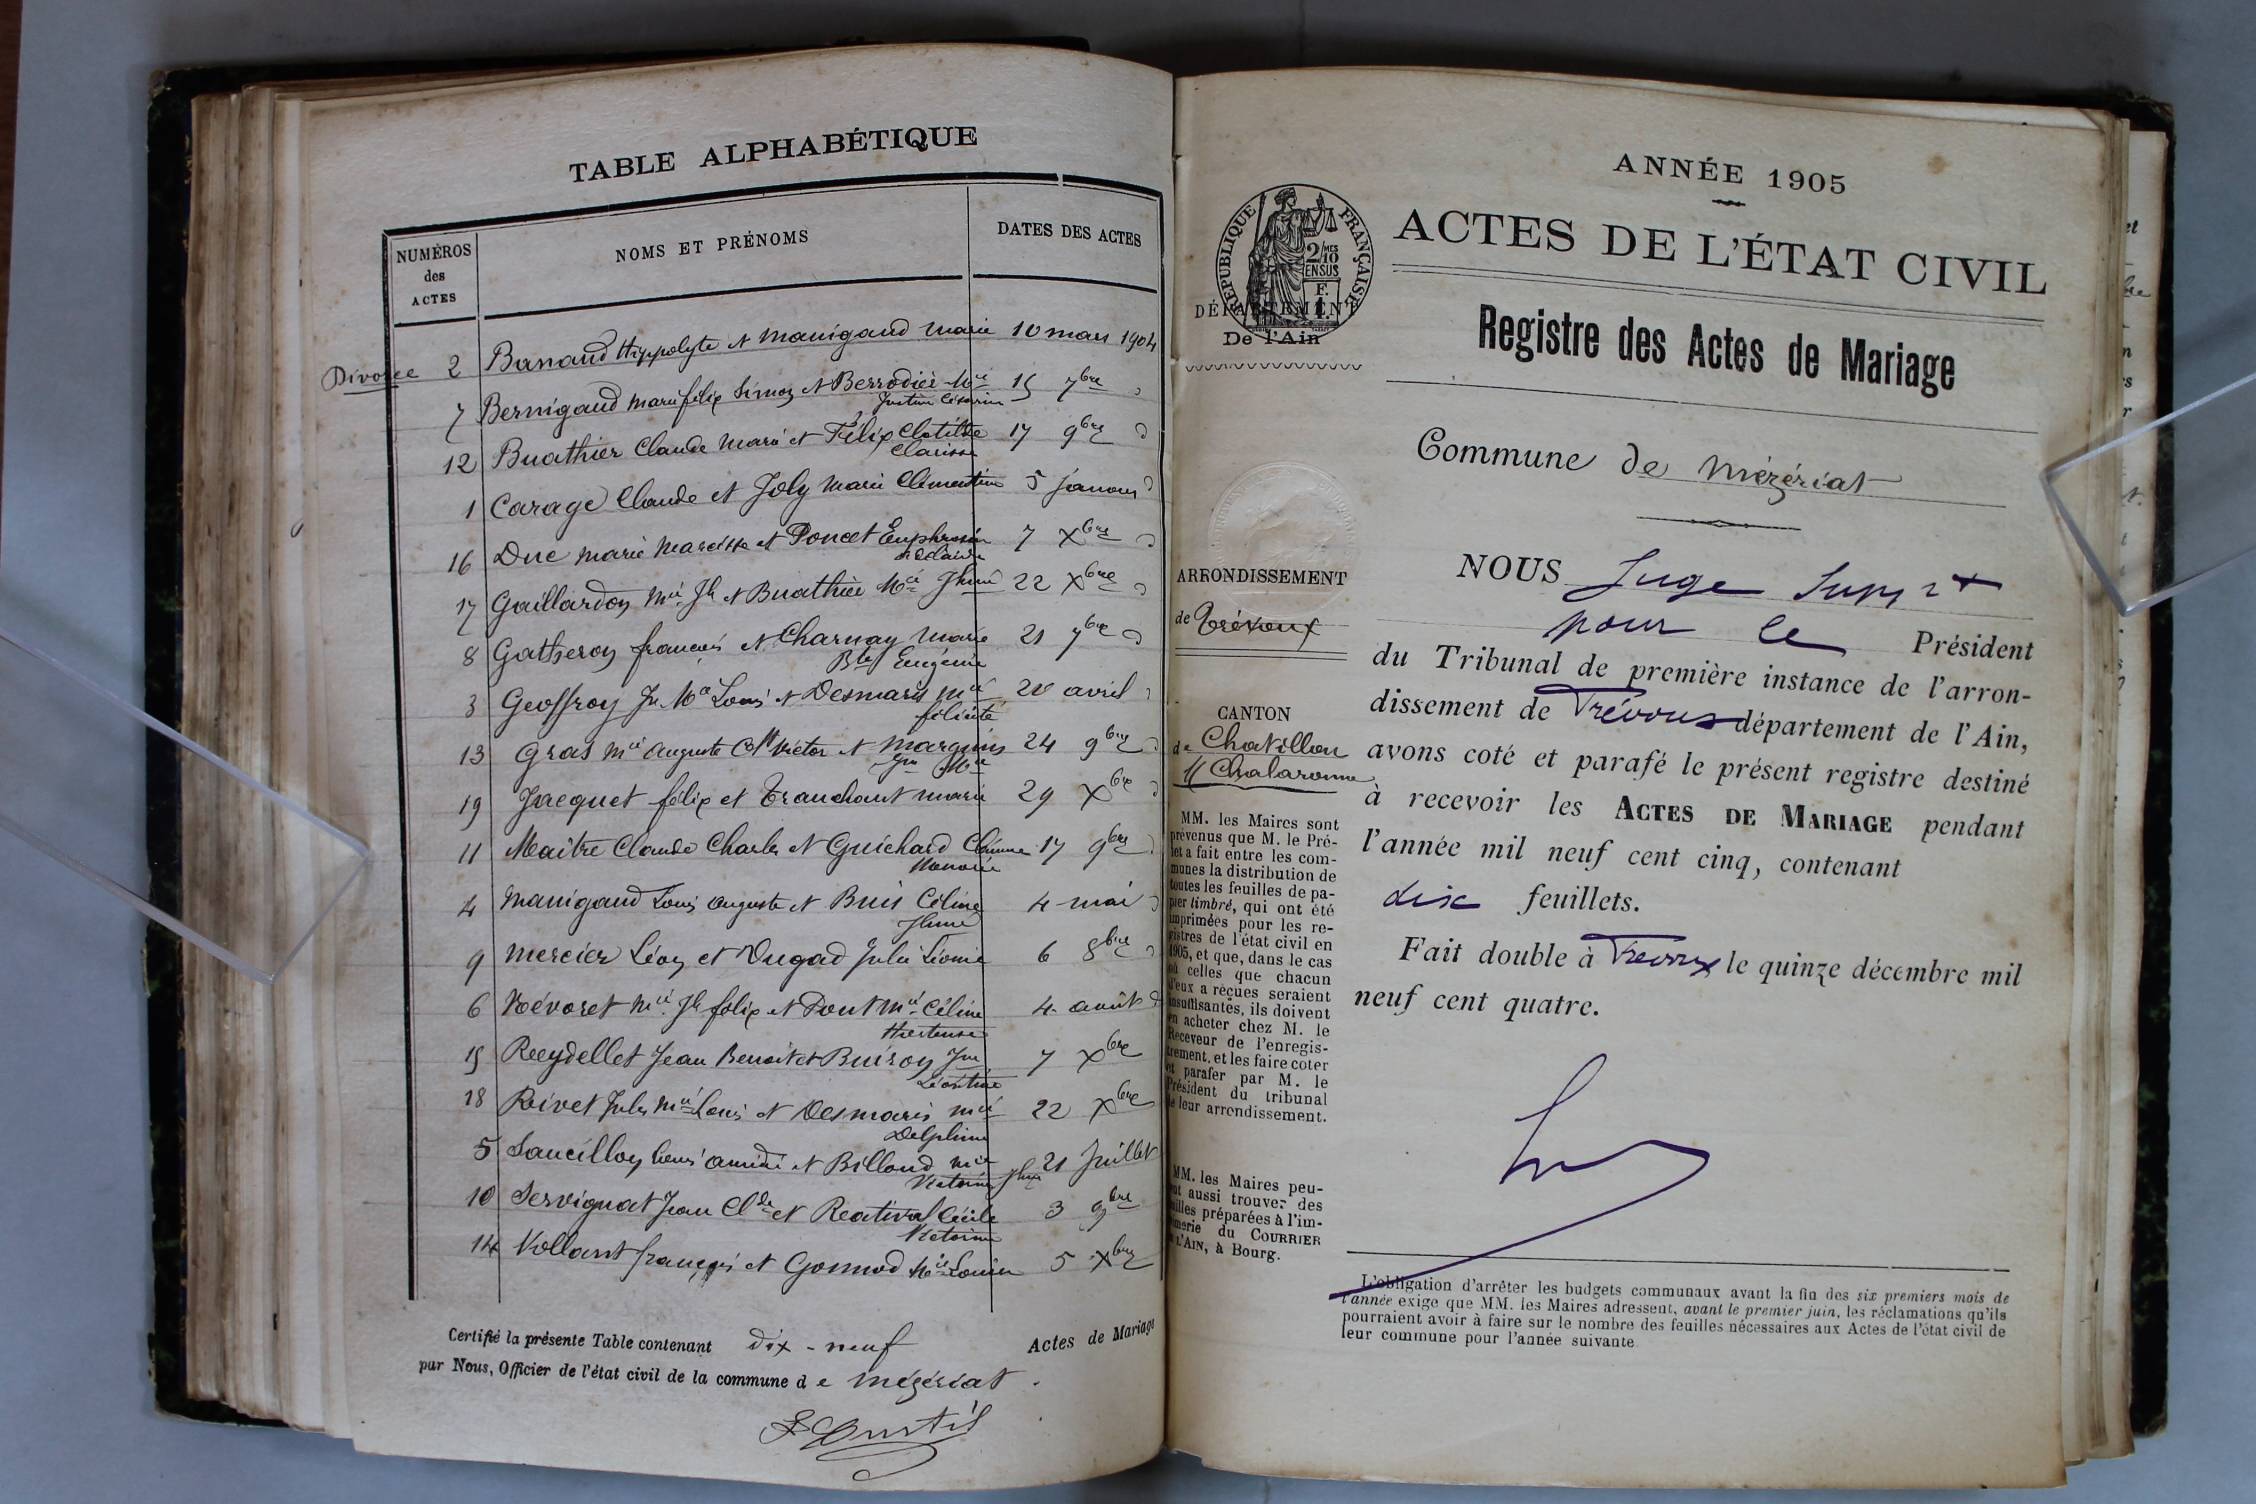 TABLE ALPHABÉTIQUE
NUMÉROS
des
ACTES
NOMS ET PRÉNOMS
DATES DES ACTES
Divorce 2 Banand Hippolyte et Manigand Marie 10 mars 1904
7 Bernigaud Marie félix Simon et Berrodier Mie 15 7bre
Justine Césarine
12 Buathier Claude Marie et Félix Clotilde 17 9bre
Clarisse
1 Carage Claude et Joly Marie Clémentine 5 janvier
16 Duc Marie Narcisse et Poncet Euphrosine 7 Xbre
17 Gaillardon Mie Jh et Buathier Mie Jhine 22 Xbre
8 Gatheron françois et Charnay Marie 21 7bre
Bte Eugénie
3 Geoffroy Jn Mie Louis et Desmaris Mie 28 avril
félicité
13 Gras Mie Auguste Clt Victor et Marguin 24 9bre
Jne Mie
19 Jacquet félix et Tranchant Marie 29 Xbre
11 Maître Claude Charles et Guichard 17 9bre
4 Manigand Louis Auguste et Buis Céline 4 mai
Jhine
9 Mercier Léon et Dugad Julie Léonie 6 8bre
6 Névoret Mie Jh félix et Pont Mie Céline 4 août
Hortense
15 Reydellet Jean Benoit et Buiron Jne 7 Xbre
Léontine
18 Rivet Jules Mie Louis et Desmaris Mie 22 Xbre
Delphine
5 Saucillon et Billoud Mie 21 Juillet
Victorine Jhine
10 Servignat Jean Clde et Cécile 3 9bre
Victorine
14 Vollant françois et Gonnod Mie Louise 5 Xbre
Certifié la présente Table contenant dix-neuf Actes de Mariage
par Nous, Officier de l'état civil de la commune de Mézériat.
ANNÉE 1905
ACTES DE L'ÉTAT CIVIL
Registre des Actes de Mariage
Commune de Mézériat
RÉPUBLIQUE FRANÇAISE
2/10 EN SUS
F.
1.
DÉPARTEMENT
De l'Ain
ARRONDISSEMENT
de Trévoux
CANTON
de Chatillon
s/ Chalaronne
MM. les Maires sont
prévenus que M. le Pré-
fet a fait entre les com-
munes la distribution de
toutes les feuilles de pa-
pier timbré, qui ont été
imprimées pour les re-
gistres de l'état civil en
1905, et que, dans le cas
où celles que chacun
d'eux a reçues seraient
insuffisantes, ils doivent
en acheter chez M. le
Receveur de l'enregis-
trement, et les faire coter
et parafer par M. le
Président du tribunal
de leur arrondissement.
MM. les Maires peu-
vent aussi trouver des
feuilles préparées à l'im-
primerie du COURRIER
DE L'AIN, à Bourg.
NOUS Juge Suppt
pour le Président
du Tribunal de première instance de l'arron-
dissement de Trévoux département de l'Ain,
avons coté et parafé le présent registre destiné
à recevoir les ACTES DE MARIAGE pendant
l'année mil neuf cent cinq, contenant
dix feuillets.
Fait double à Trévoux le quinze décembre mil
neuf cent quatre.
L'obligation d'arrêter les budgets communaux avant la fin des six premiers mois de
l'année exige que MM. les Maires adressent, avant le premier juin, les réclamations qu'ils
pourraient avoir à faire sur le nombre des feuilles nécessaires aux Actes de l'état civil de
leur commune pour l'année suivante.